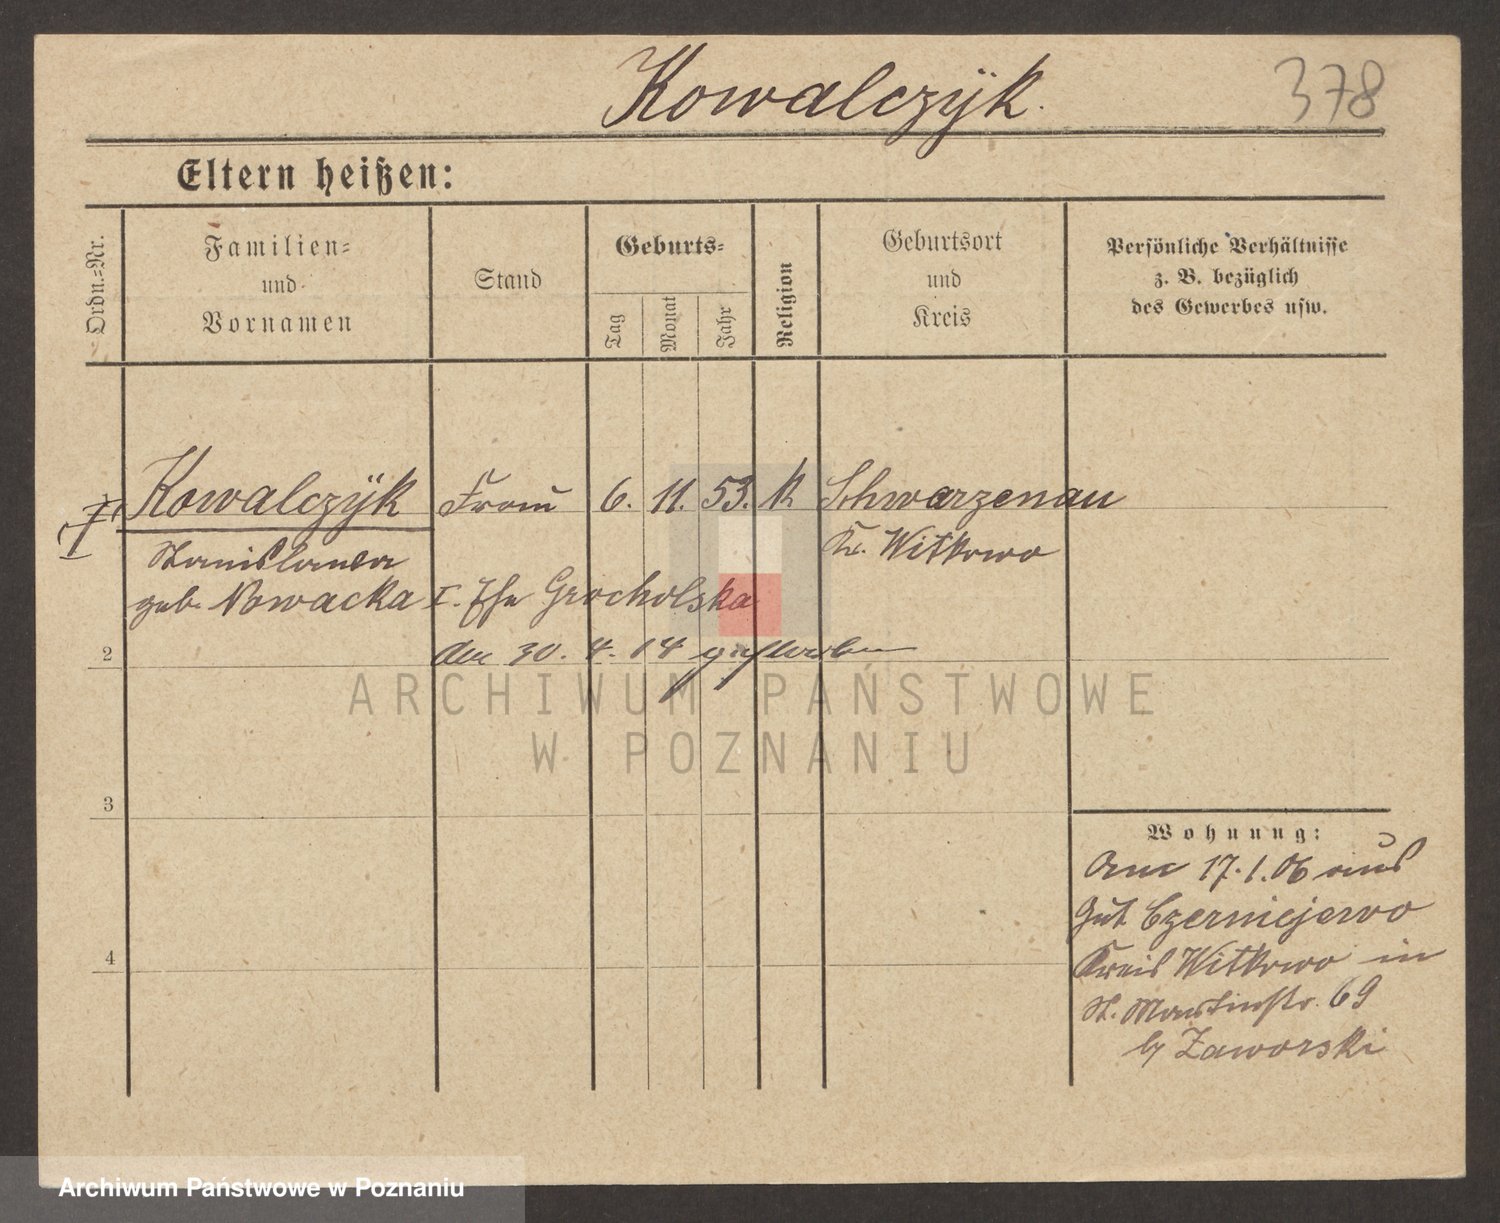 Kowalczÿk.
378
Eltern heißen:
Ordn.=Nr.
Familien=
und
Vornamen
Stand
Geburts=
Tag
Monat
Jahr
Religion
Geburtsort
und
Kreis
Persönliche Verhältnisse
z. B. bezüglich
des Gewerbes usw.
Kowalczÿk Frau 6. 11. 53. k Schwarzenau
Stanislawa Kr. Witkowo
geb. Nowacka I. Ehe Grocholska
2 den 30. 4. 14 gestorben
ARCHIWUM PAŃSTWOWE
W POZNANIU
3
Wohnung:
Am 17.1.06 aus
Gut Czerniejewo
4 Kreis Witkowo in
St. Martinstr. 69
by Zaworski
Archiwum Państwowe w Poznaniu